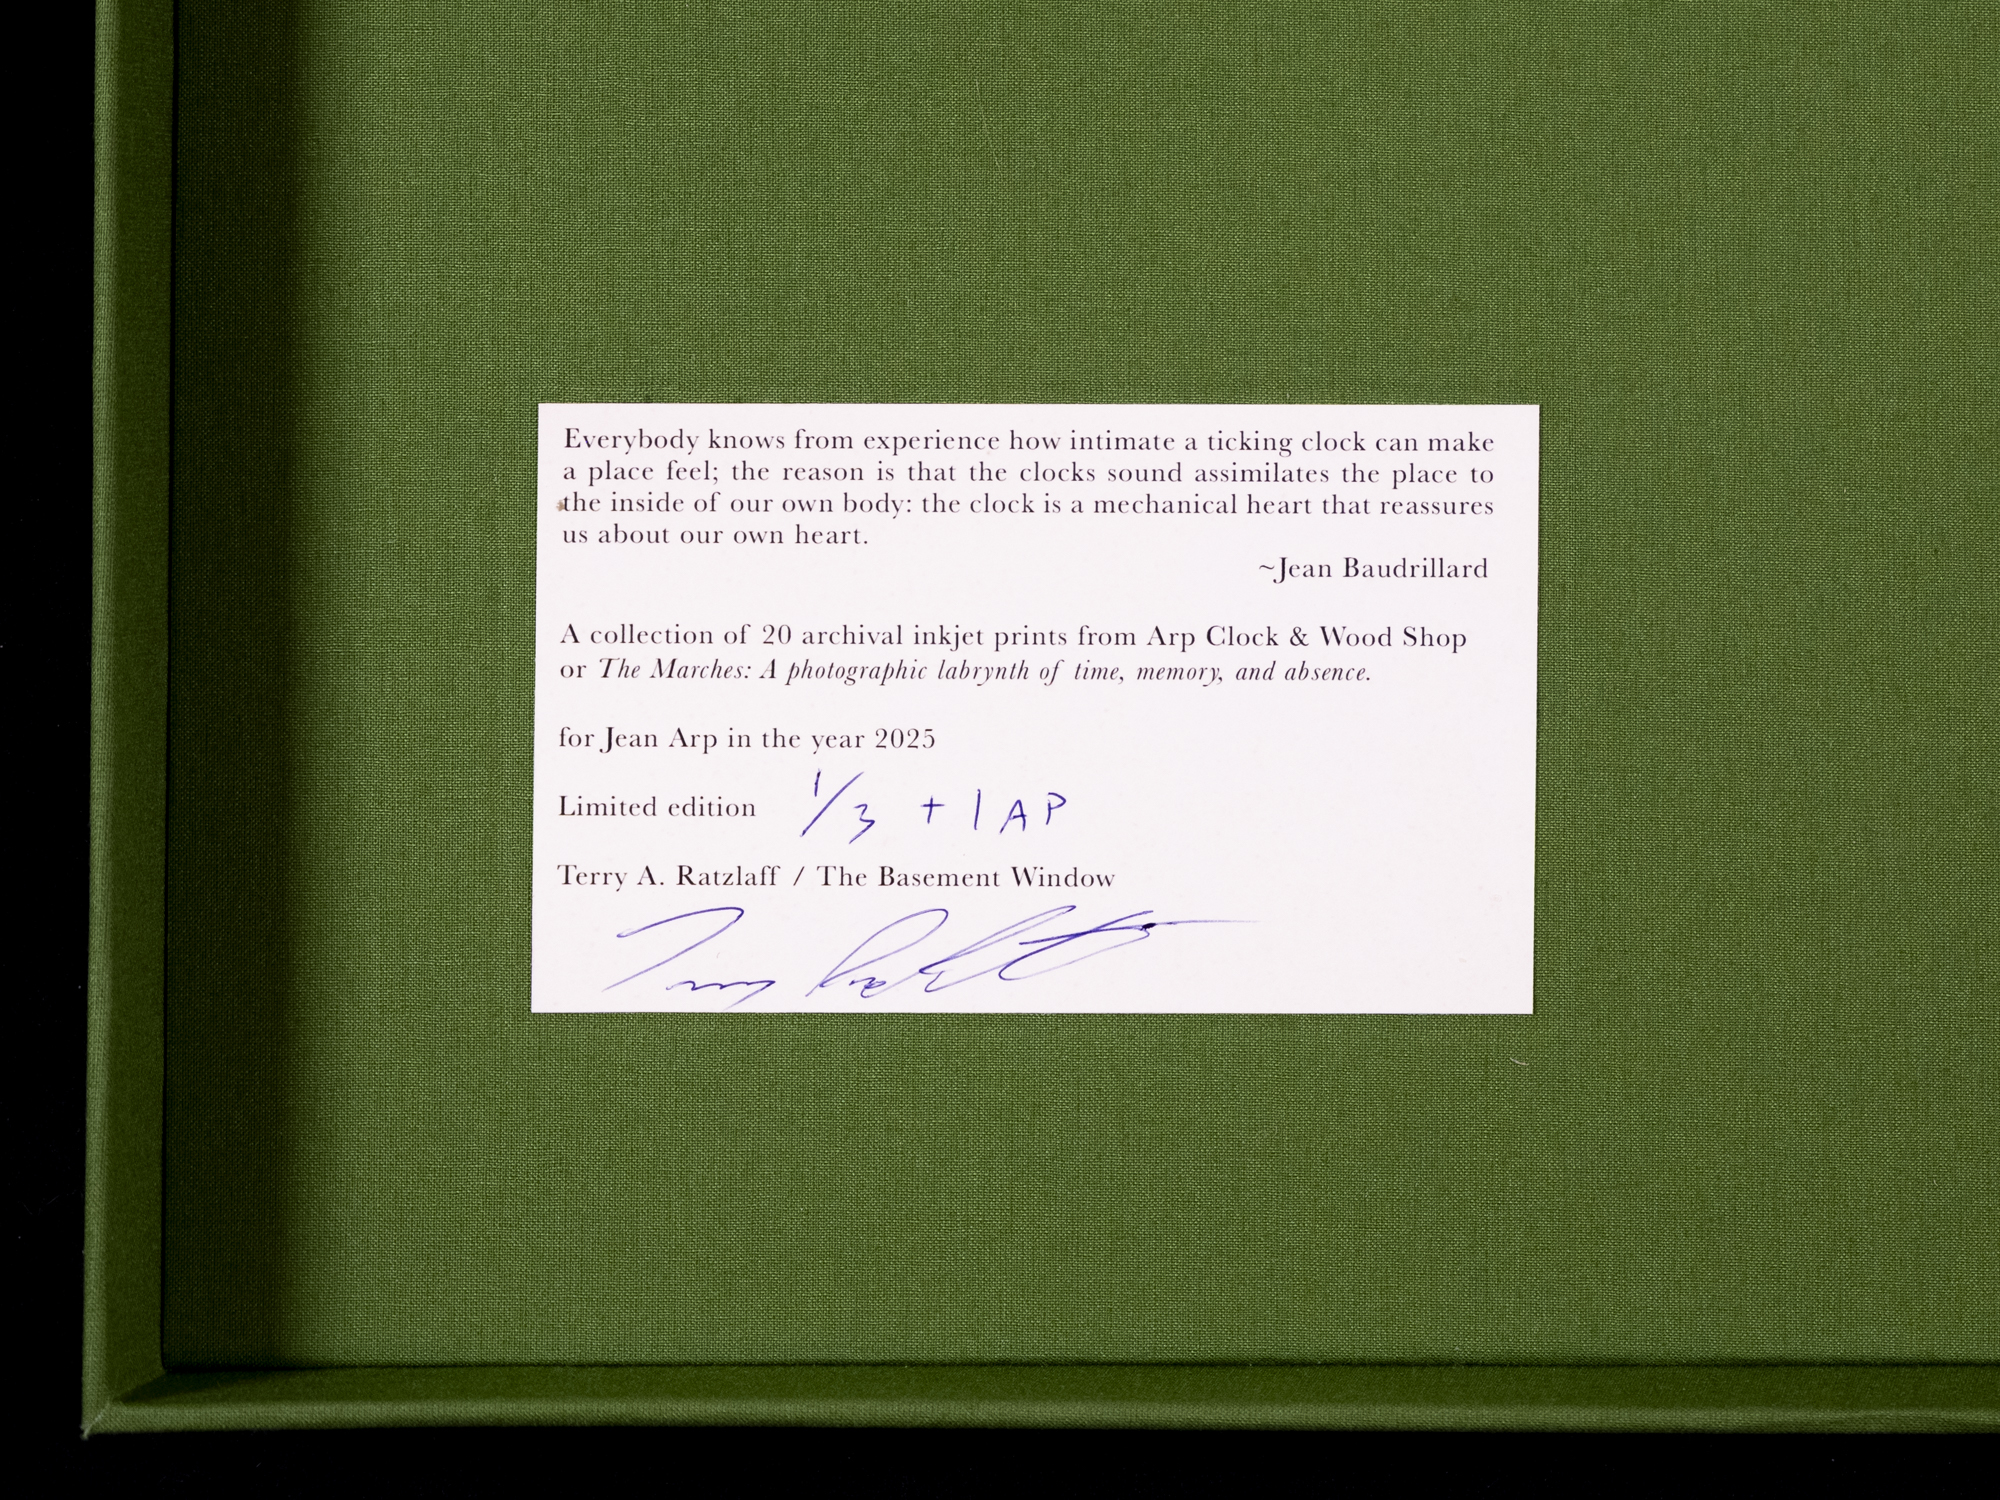 Everybody knows from experience how intimate a ticking clock can make
a place feel; the reason is that the clocks sound assimilates the place to
the inside of our own body: the clock is a mechanical heart that reassures
us about our own heart.
~Jean Baudrillard
A collection of 20 archival inkjet prints from Arp Clock & Wood Shop
or The Marches: A photographic labrynth of time, memory, and absence.
for Jean Arp in the year 2025
Limited edition 1/3 + 1 AP
Terry A. Ratzlaff / The Basement Window